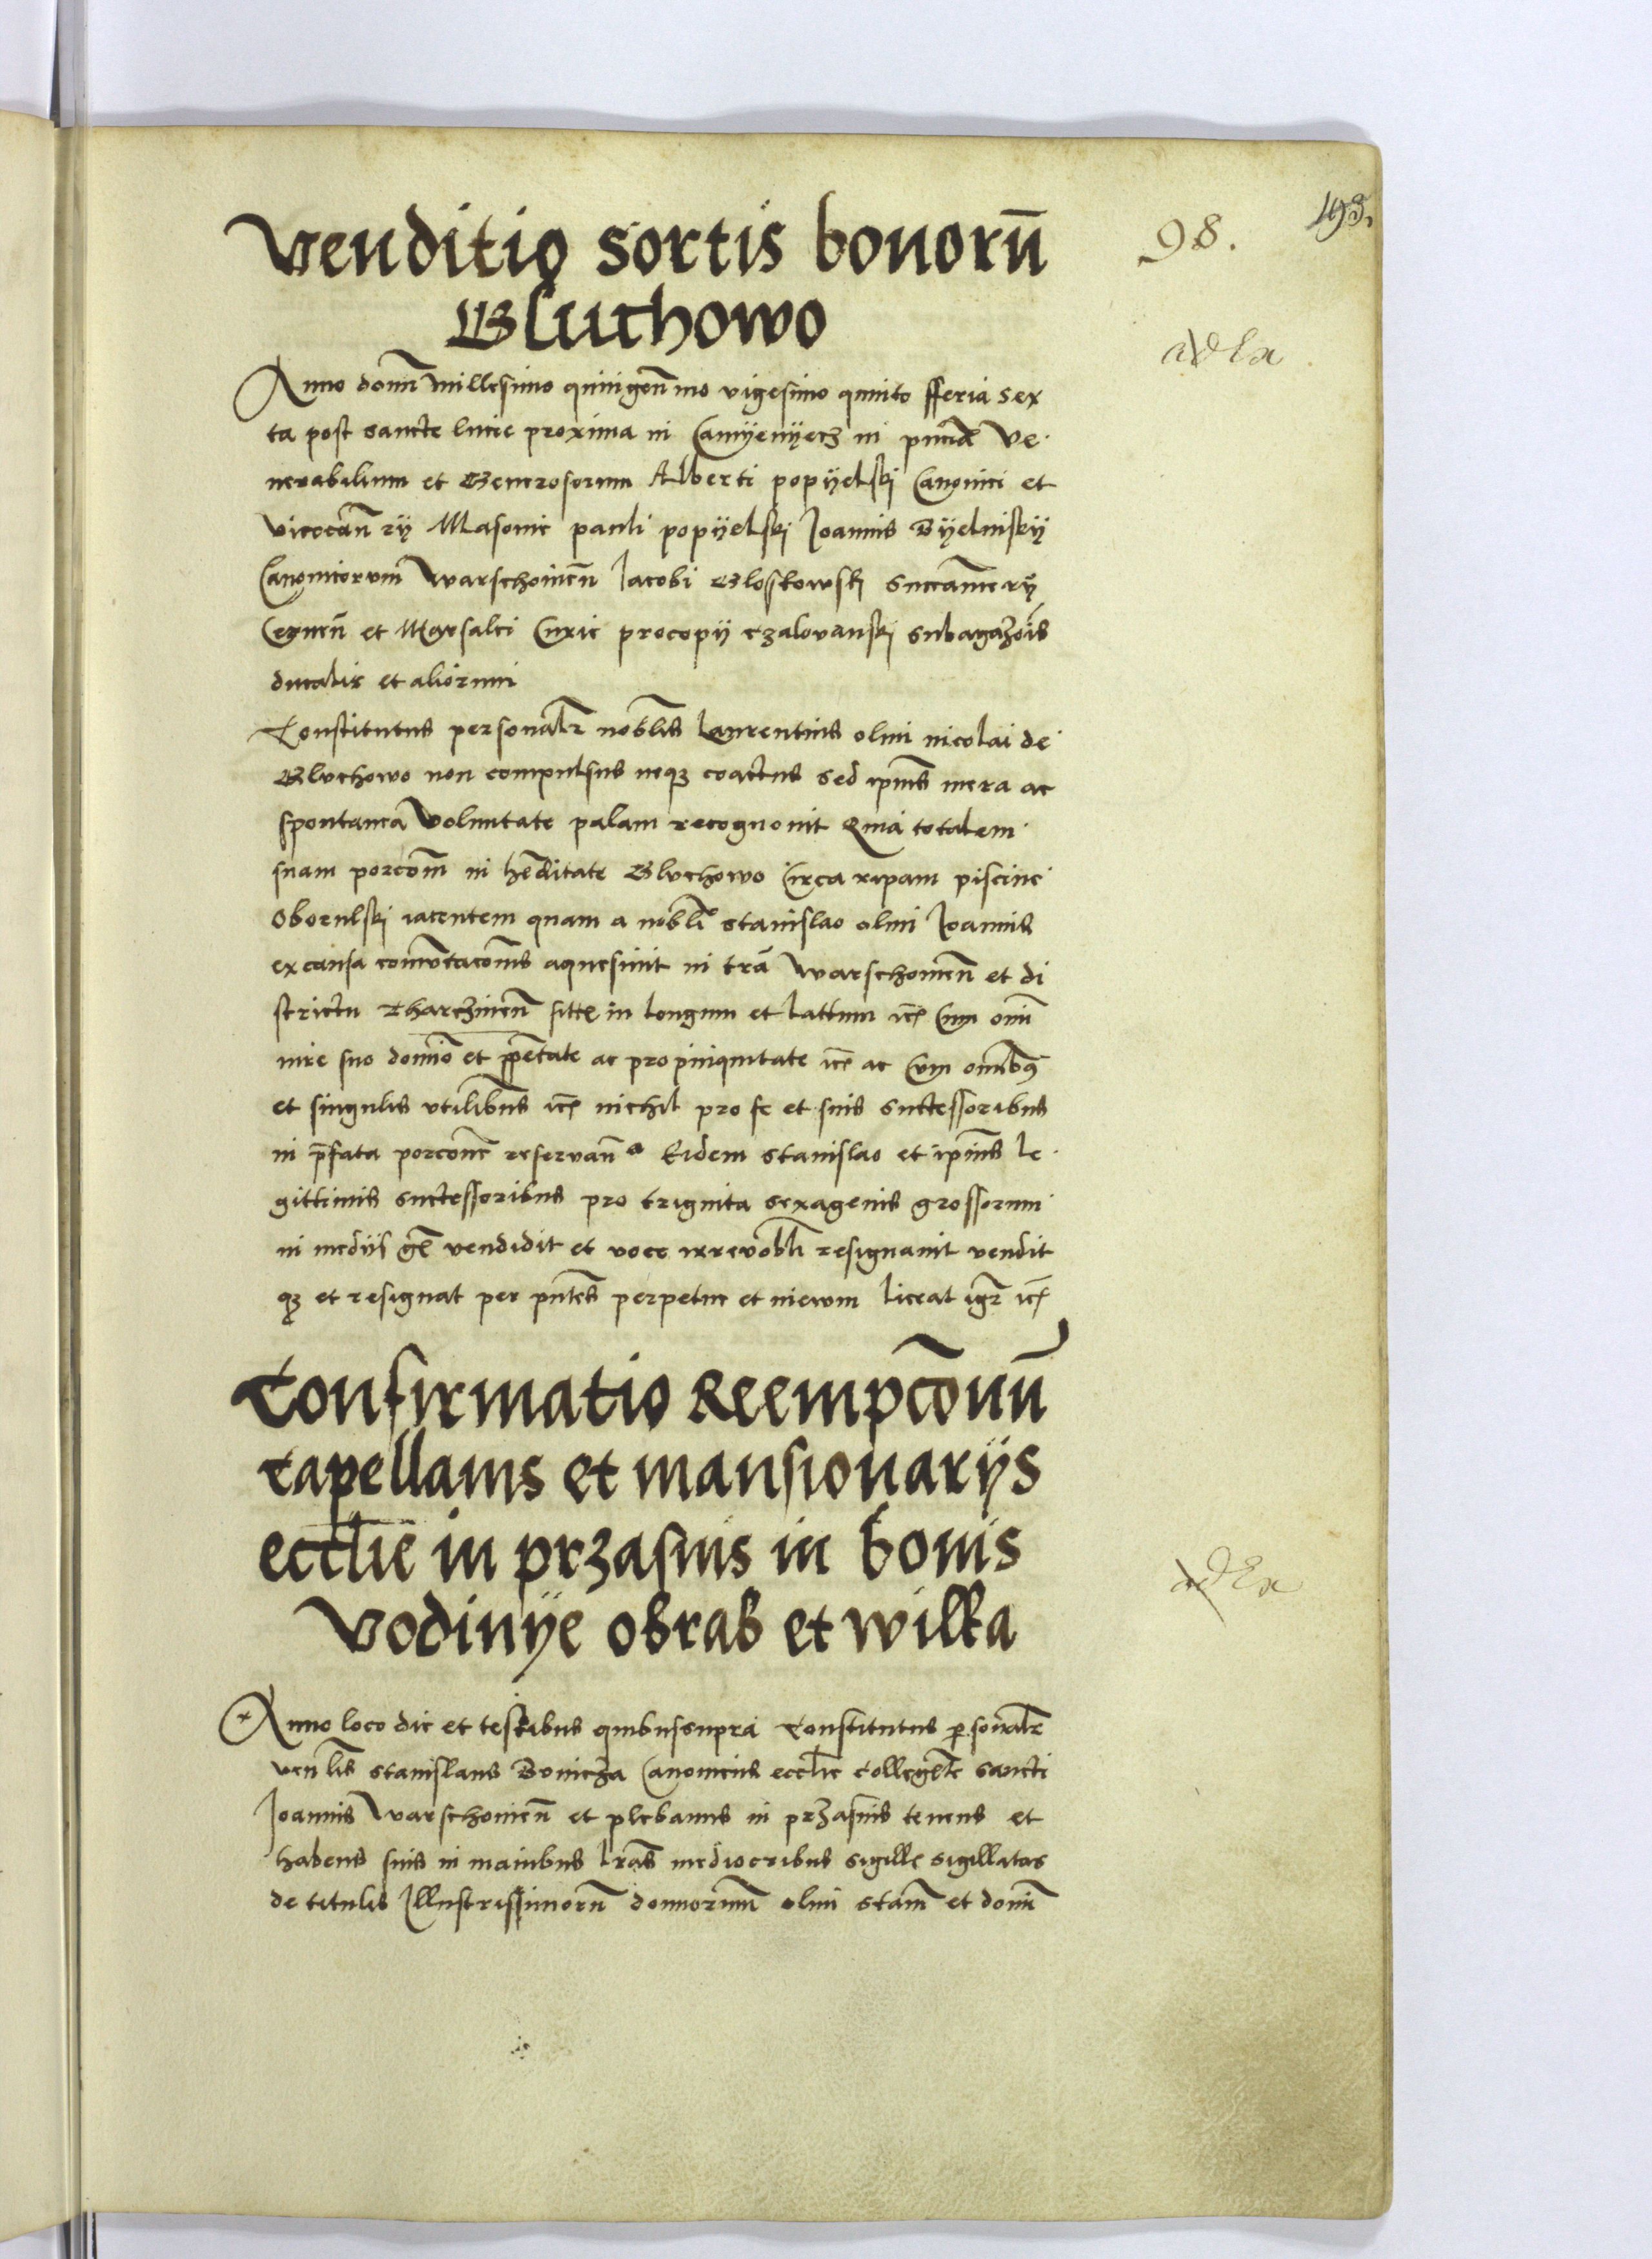 Venditio sortis bonorū
Gluchowo
98.
193.
Anno domī millesimo quingenmo vigesimo quinto fferia sex
ad la
ta post sancte lucie proxima in Camyenyecz in pntia Ve
nerabilium et Generosorum Alberti popyelski Canonici et
vicecan̄ry Masovie pauli popyelski Joannis Byelinskÿ
Canonicorum Warschovien̄ Jacobi Gloskowski Succamerÿ
Cernen̄ et Marsalci Curie procopÿ czalovanski subagazōis
ducalis et aliorum
Constitutus personalr̄ nobīlis laurentius olim nicolai de
Gluchowo non compulsus neqz coactus sed ipīus mera ac
spontanea Voluntate palam recognovit Quia totalem
suam porcōm in hēditate Gluchowo Circa ripam piscine
Obornlski iacentem quam a nobīli stanislao olim Joannis
ex causa comūtacōnis aquesivit in trā Warschovien̄ et di
strictu Tharczinen̄ sitte in longum et lattum ic̄ Cum omī
iure suo domīo et pp̄etate ac propinquitate ic̄ ac Cum omībꝫ
et singulis utilibus ic̄ nichil pro se et suis successoribus
in p̄fata porcōne reservan̄ Eidem stanislao et ipīus le
gittimis successoribus pro triginta sexagenis grossorum
in mediis gr̄ vendidit et voce irrevobīli resignavit vendit
qꝫ et resignat per pn̄tes perpetue et inewm liceat igr̄ ic̄
Confirmatio Reempcōnū
capellanis et mansionariÿs
ecclie in przasnis in bonis
Vodinÿe obrab et wilka
ad Ex
Anno loco die et testibus quibussupra Constitutus ꝑsonalr̄
venlīs stanislaus Bonicza Canonicus ecclīe Collegīte sancti
Joannis Warschovien̄ et plebanus in przasnis tenens et
habens suis in manibus lrās mediocribus sigillis sigillatas
de titulis Illustrissimorū dominorum olim stanī et domī